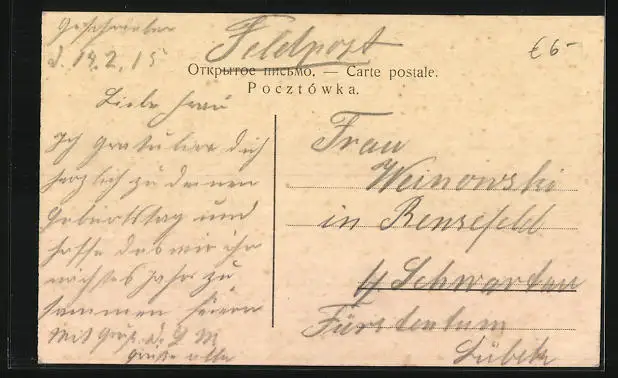 Geschrieben
d. 14.2.15
Feldpost
€6-
Открытое письмо. — Carte postale.
Pocztówka.
Liebe Frau
Ich gratuliere dich
herzlich zu deinen
Geburtstag und
hoffe das wir ihn
nächstes Jahr zu
sammen feiern
Mit Gruß d. L M
Grüße alle
Frau
Weinowski
in Rensefeld
b/ Schwartau
Fürstentum
Lübek